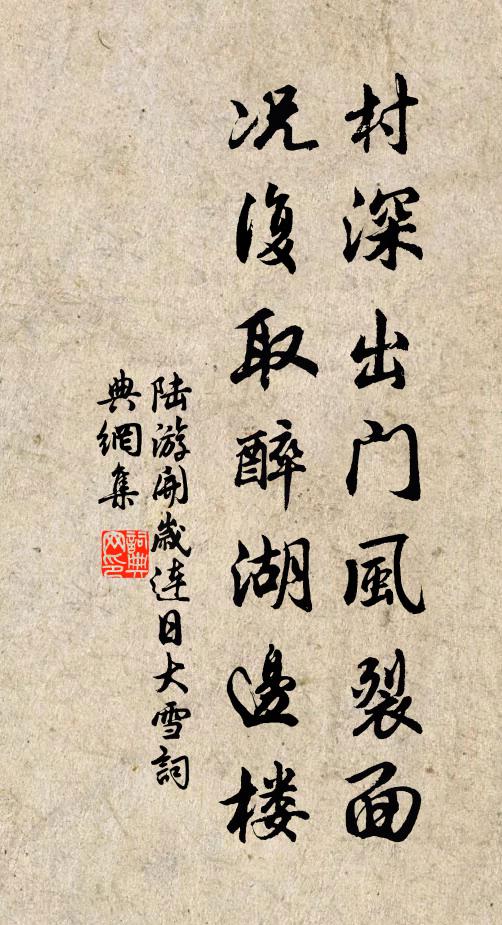 村深出门風裂面
况復取醉湖邊楼
陆游开歲連日大雪詞
典網集
詞典网印